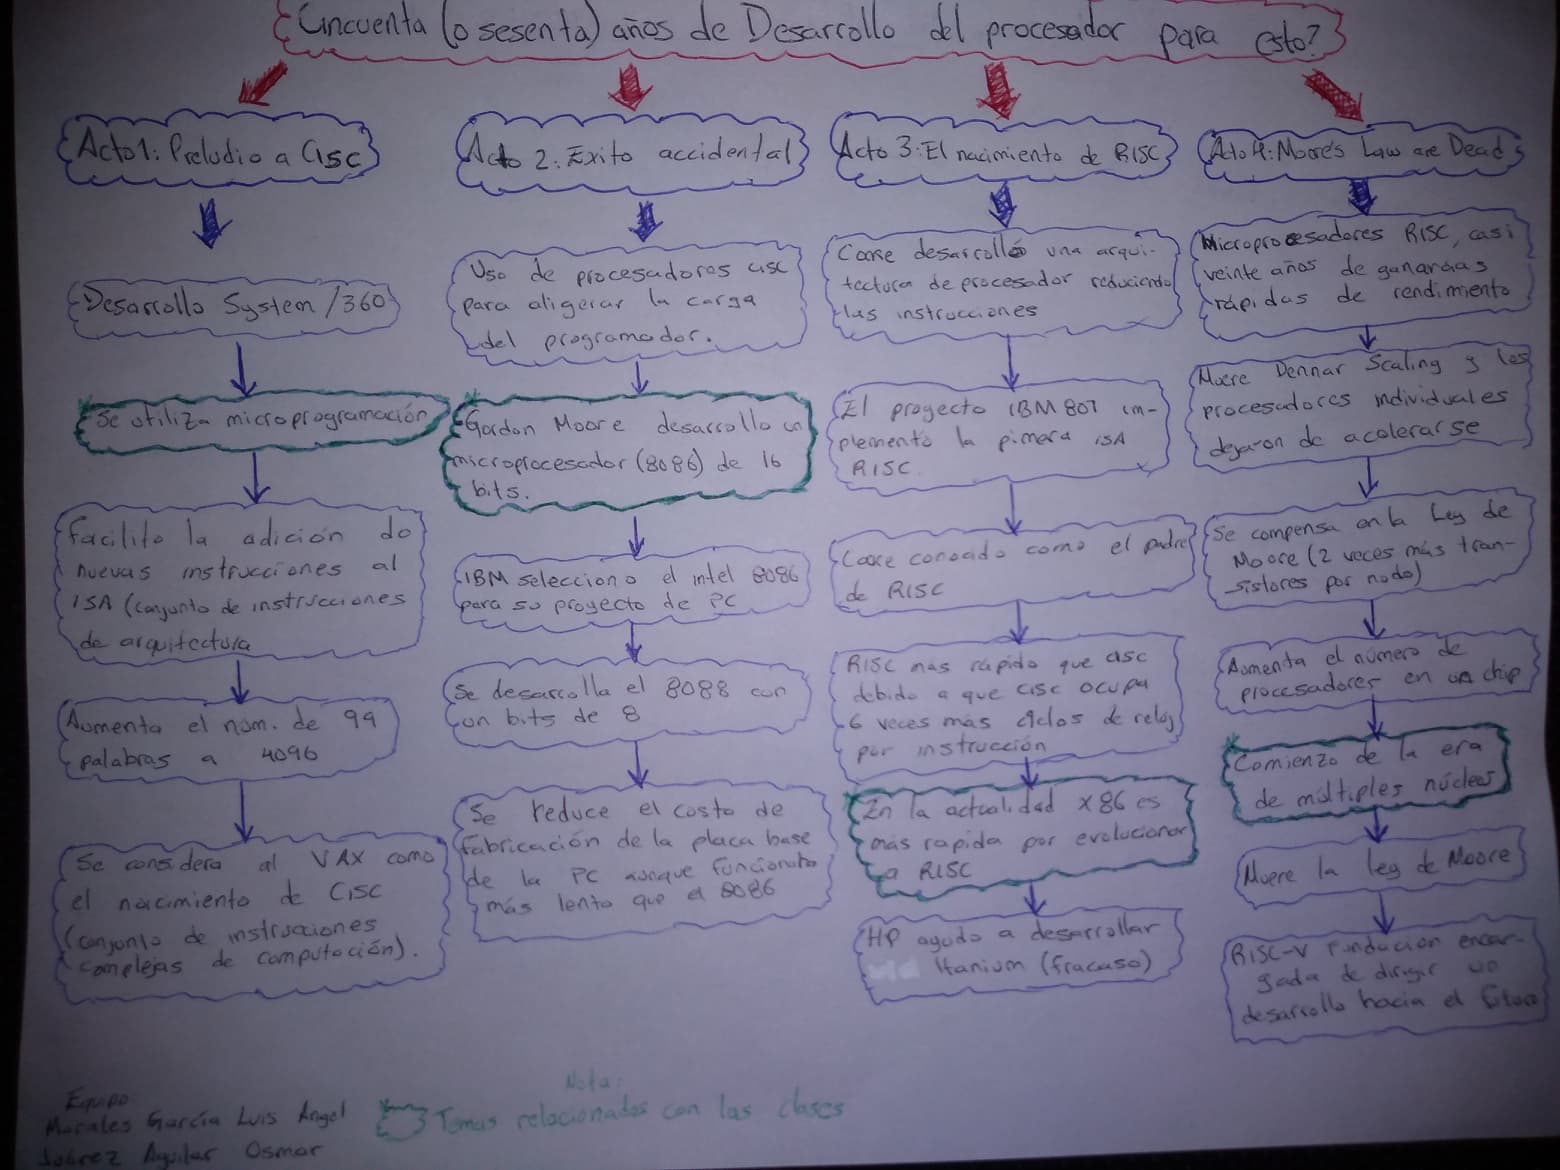 Cincuenta (o sesenta) años de Desarrollo del procesador para esto?
Acto 1: Preludio a Cisc
Desarrollo System/360
Se utiliza microprogramación
Facilito la adición de
nuevas instrucciones al
ISA (conjunto de instrucciones
de arquitectura
Aumenta el num. de 99
palabras a 4096
Se considera al VAX como
el nacimiento de CISC
(conjunto de instrucciones
complejas de computación).
Acto 2: Exito accidental
Uso de procesadores cisc
para aligerar la carga
del programador.
Gordon Moore desarrollo un
microprocesador (8086) de 16
bits.
IBM selecciono el intel 8086
para su proyecto de PC
Se desarrolla el 8088 con
un bits de 8
Se reduce el costo de
fabricación de la placa base
de la PC aunque funcionaba
más lento que el 8086
Acto 3: El nacimiento de RISC
Cooke desarrolló una arqui-
tectura de procesador reduciendo
las instrucciones
El proyecto IBM 801 im-
plemento la pimera ISA
RISC.
Cooke conocido como el padre
de RISC
RISC mas rápido que cisc
debido a que cisc ocupa
6 veces más ciclos de reloj
por instrucción
En la actualidad x86 es
más rapida por evolucionar
a RISC
HP ayudo a desarrollar
Itanium (fracaso)
Acto 4: Moore's Law are Dead
Microprocesadores RISC, casi
veinte años de ganancias
rápidas de rendimiento
Muere Dennar Scaling y los
procesadores individuales
dejaron de acelerarse
Se compensa en la Ley de
Moore (2 veces más tran-
sistores por nodo)
Aumenta el número de
procesadores en un chip
Comienzo de la era
de múltiples núcleos
Muere la ley de Moore
RISC-V Fundacion encar-
gada de dirigir un
desarrollo hacia el futuro
Equipo
Morales García Luis Angel
Juárez Aguilar Osmar
Nota:
Temas relacionados con las clases